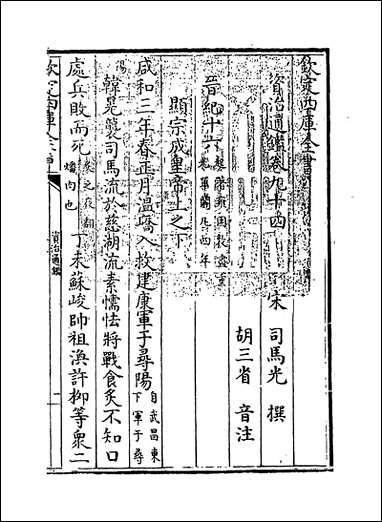 欽定四庫全書
資治通鑑卷九十四
宋 司馬光 撰
胡三省 音注
晉紀十六 起著雍困敦盡重光單閼凡四年
顯宗成皇帝上之下
咸和三年春正月溫嶠入救建康軍于尋陽 自武昌東下軍于尋
陽 韓晃襲司馬流於慈湖流素懦怯將戰食炙不知口
處兵敗而死 炙之夜翻燔肉也 丁未蘇峻帥祖渙許柳等衆二
欽定四庫全書
資治通鑑